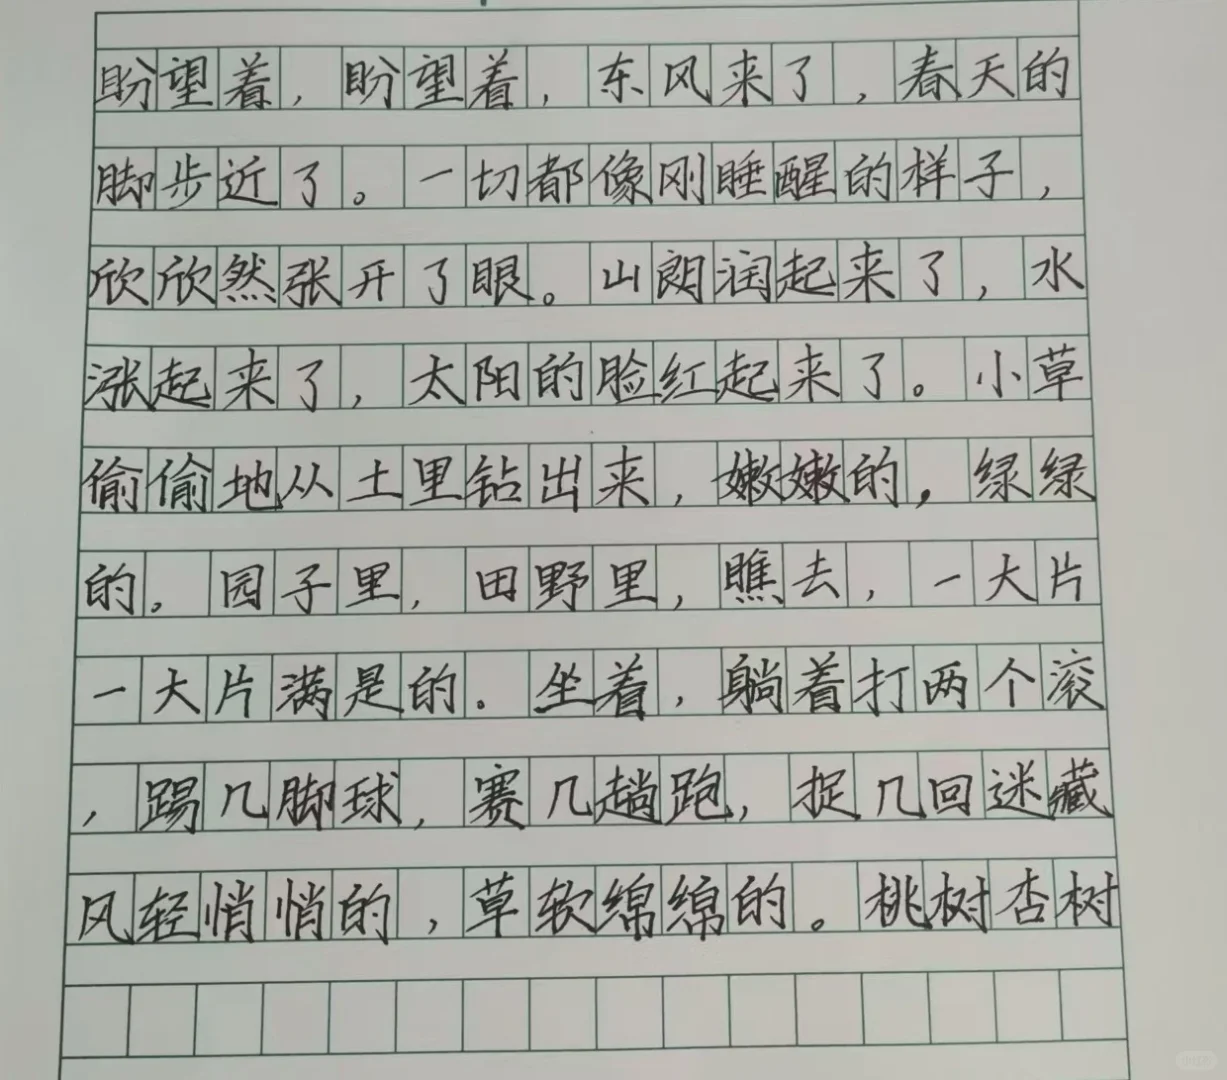 盼望着，盼望着，东风来了，春天的
脚步近了。一切都像刚睡醒的样子，
欣欣然张开了眼。山朗润起来了，水
涨起来了，太阳的脸红起来了。小草
偷偷地从土里钻出来，嫩嫩的，绿绿
的。园子里，田野里，瞧去，一大片
一大片满是的。坐着，躺着打两个滚
，踢几脚球，赛几趟跑，捉几回迷藏
风轻悄悄的，草软绵绵的。桃树杏树